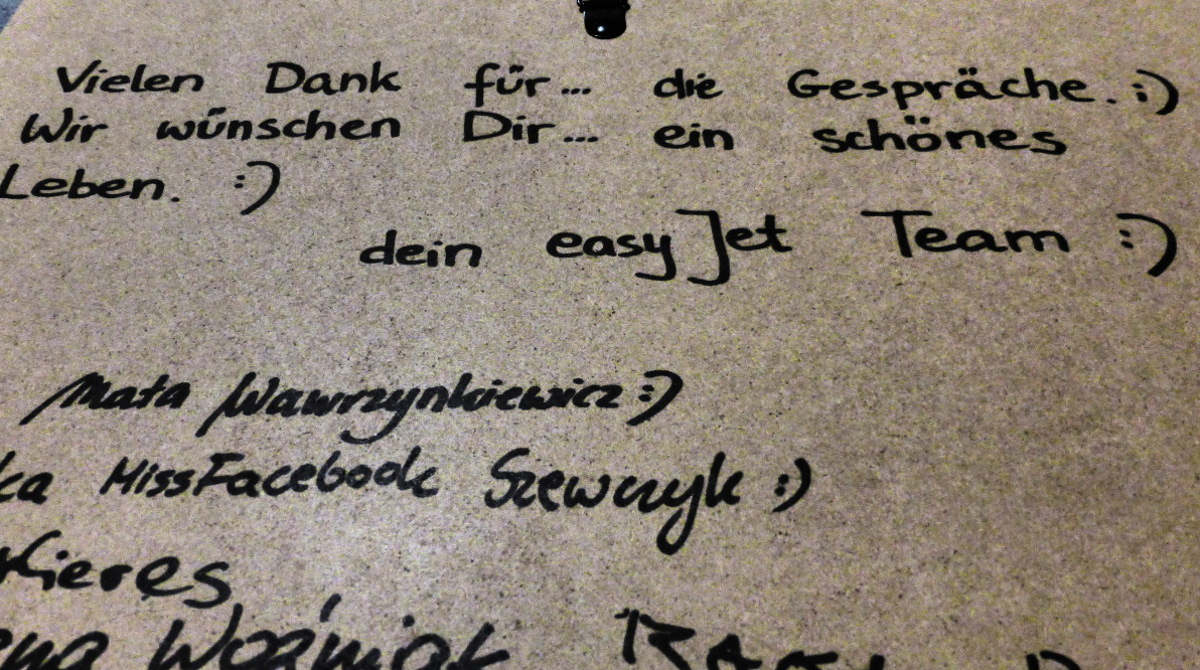 Vielen Dank für... die Gespräche. :)
Wir wünschen Dir... ein schönes
Leben. :)
dein easyJet Team :)
Mata Wawrzynkiewicz :)
MissFacebook Szewczyk :)
Woźniak